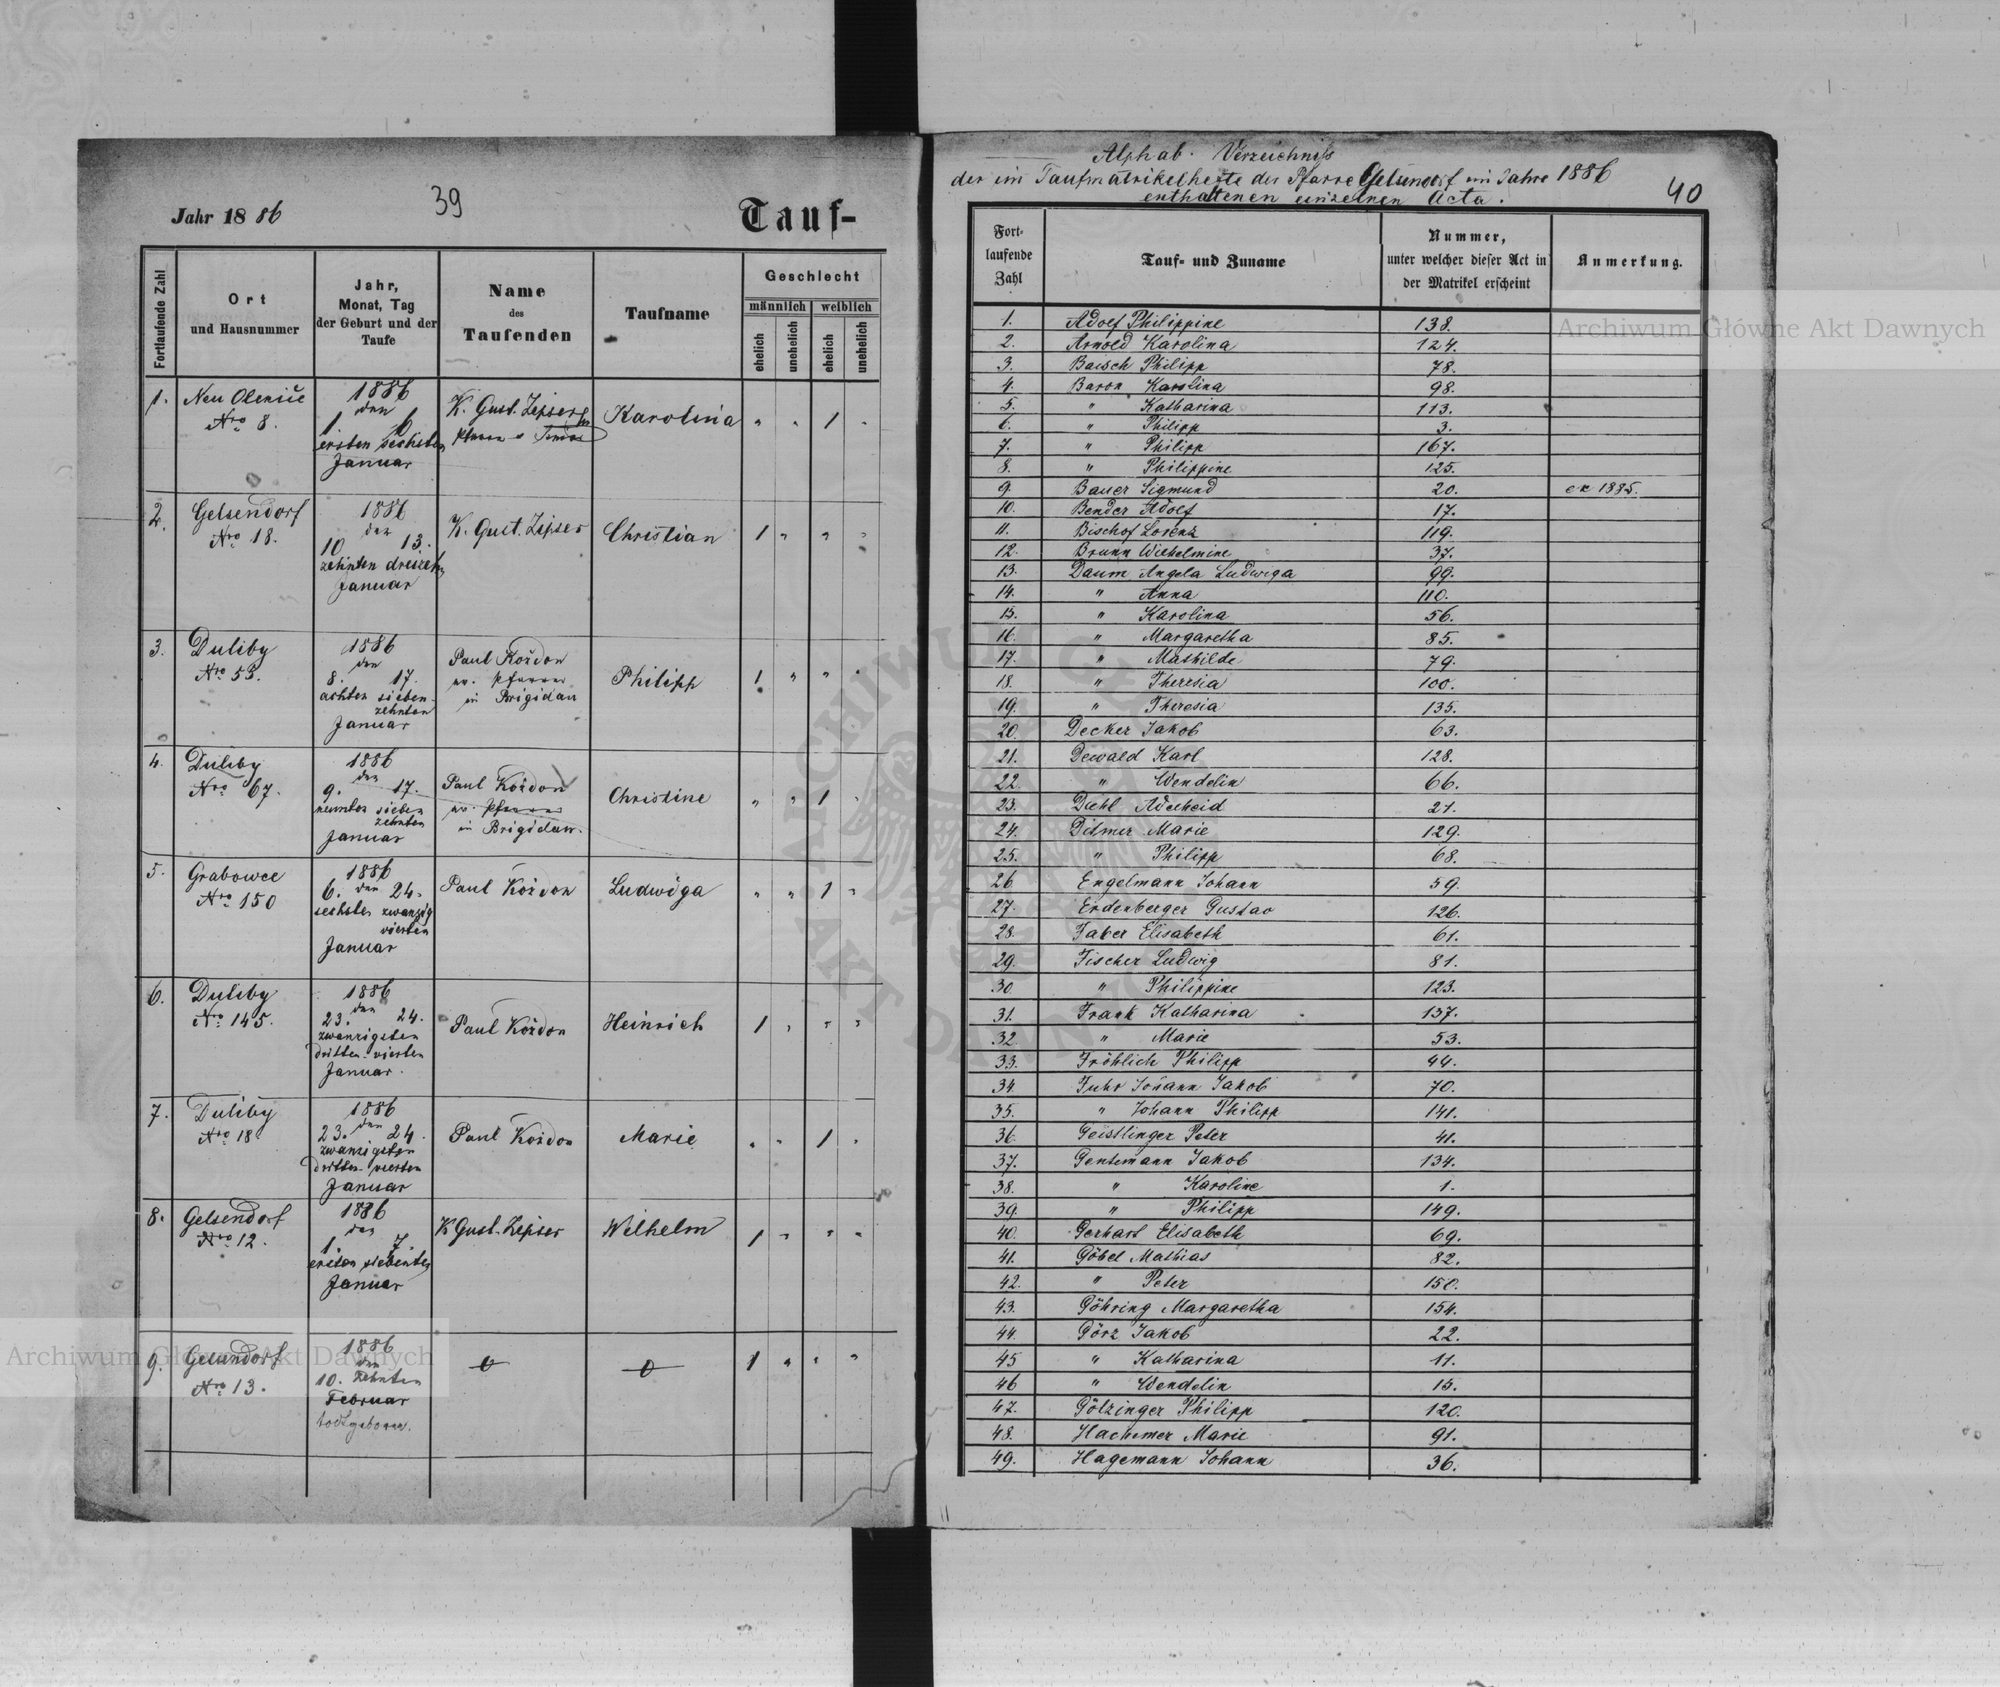 39
Jahr 1886
Tauf-
Fortlaufende Zahl
Ort
und Hausnummer
Jahr,
Monat, Tag
der Geburt und der
Taufe
Name
des
Taufenden
Taufname
Geschlecht
männlich weiblich
ehelich unehelich ehelich unehelich
1. Neu Olexiče 1886 K. Gust. Zipser Karolina " " 1 "
Nro 8. den
1 6
ersten sechsten
Januar
2. Gelsendorf 1886 K. Gust. Zipser Christian 1 " " "
Nro 18. den
10 13.
zehnten dreizehn
Januar
3. Duliby 1886 Paul Koždon Philipp 1 " " "
Nro 53. den ev. Pfarrer
8. 17. in Brigidau
achten sieben
zehnten
Januar
4. Duliby 1886 Paul Koždon Christine " " 1 "
Nro 67. den ev. Pfarrer
9. 17. in Brigidau.
neunten sieben
zehnten
Januar
5. Grabowce 1886 Paul Koždon Ludwiga " " 1 "
Nro 150 6. den 24.
sechsten zwanzig
vierten
Januar
6. Duliby 1886 Paul Koždon Heinrich 1 " " "
Nro 145. den
23. 24.
zwanzigsten
dritten vierten
Januar.
7. Duliby 1886 Paul Koždon Marie " " 1 "
Nro 18 den
23. 24.
zwanzigsten
dritten vierten
Januar
8. Gelsendorf 1886 K Gust. Zipser Wilhelm 1 " " "
Nro 12. den
1. 7.
ersten siebenten
Januar
9. Gelsendorf 1886 0 0 1 " " "
Nro 13. den
10. zehnten
Februar
todtgeboren.
Alphab. Verzeichniss
der im Taufmatrikelhefte der Pfarre Gelsendorf im Jahre 1886
enthaltenen einzelnen Acta.
40
Fort-
laufende
Zahl
Tauf- und Zuname
Nummer,
unter welcher dieser Act in
der Matrikel erscheint
Anmerkung.
1. Adolf Philippine 138.
2. Arnold Karolina 124.
3. Baisch Philipp 78.
4. Baron Karolina 98.
5. " Katharina 113.
6. " Philipp 3.
7. " Philipp 167.
8. " Philippine 125.
9. Bauer Sigmund 20. ex 1885.
10. Bender Adolf 17.
11. Bischof Lorenz 119.
12. Brunn Wilhelmine 37.
13. Daum Angela Ludwiga 99.
14. " Anna 110.
15. " Karolina 56.
16. " Margaretha 85.
17. " Mathilde 79.
18. " Theresia 100.
19. " Theresia 135.
20. Decker Jakob 63.
21. Dewald Karl 128.
22. " Wendelin 66.
23. Diehl Adelheid 21.
24. Ditmer Marie 129.
25. " Philipp 68.
26 Engelmann Johann 59.
27. Erdenberger Gustav 126.
28. Faber Elisabeth 61.
29. Fischer Ludwig 81.
30. " Philippine 123.
31. Frank Katharina 137.
32. " Marie 53.
33. Fröhlich Philipp 44.
34. Fuhr Johann Jakob 70.
35. " Johann Philipp 141.
36. Geistlinger Peter 41.
37. Gentemann Jakob 134.
38. " Karoline 1.
39. " Philipp 149.
40. Gerhart Elisabeth 69.
41. Göbel Mathias 82.
42. " Peter 150.
43. Göhring Margaretha 154.
44. Görz Jakob 22.
45 " Katharina 11.
46 " Wendelin 15.
47. Götzinger Philipp 120.
48. Hachemer Marie 91.
49. Hagemann Johann 36.
Archiwum Główne Akt Dawnych
Archiwum Główne Akt Dawnych